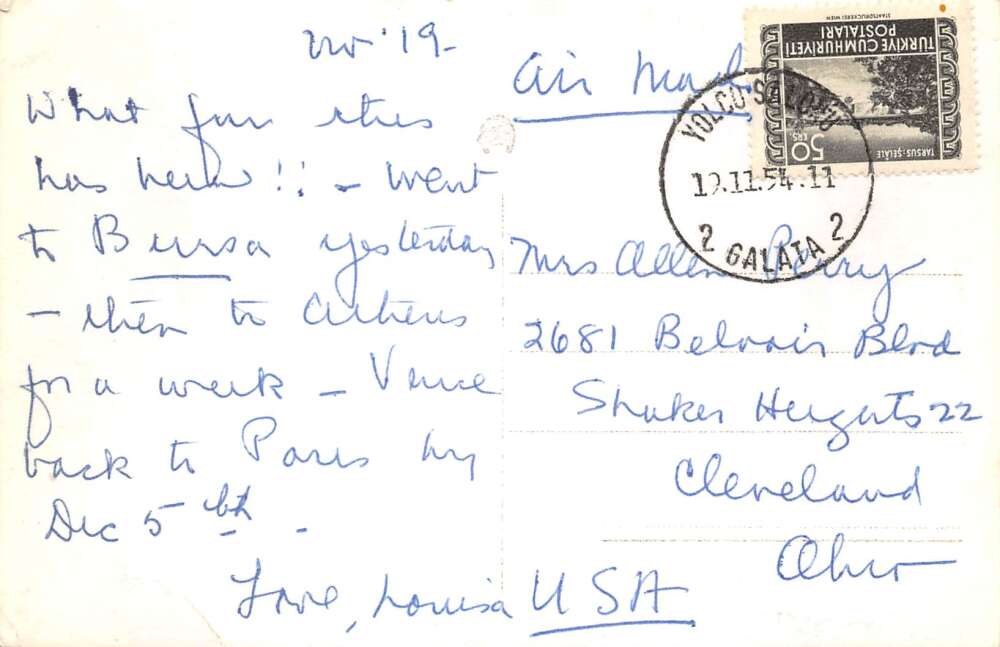 Nov '19-
What fun this
has been!! - went
to Bursa yesterday
- then to Athens
for a week - Venice
back to Paris by
Dec 5th -
Love, Louisa
Air Mail
Mrs Allen Perry
2681 Belvoir Blvd
Shaker Heights 22
Cleveland
Ohio
USA
TÜRKİYE CUMHURİYETİ
POSTALARI
STAATSDRUCKEREI WIEN
50
KRS
TARSUS-ŞELALE
YOLCU SALONU
19.11.54.11
2 GALATA 2